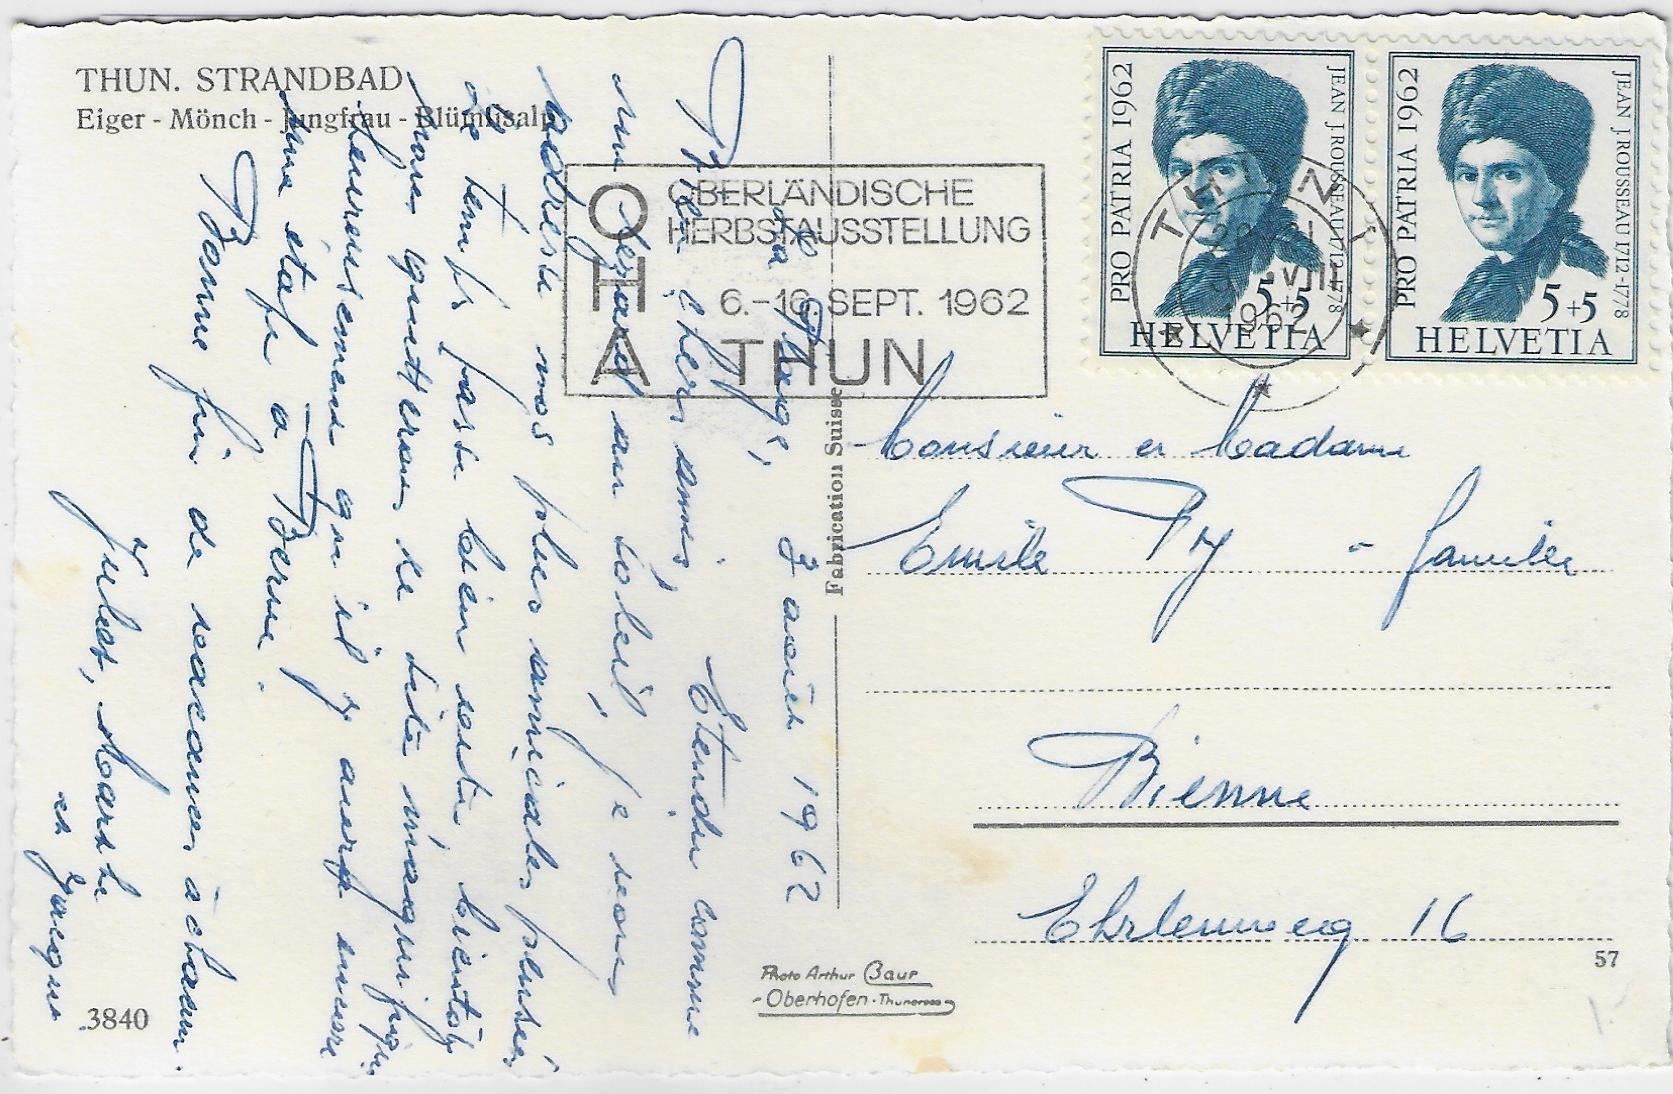 THUN. STRANDBAD
Eiger - Mönch - Jungfrau - Blümlisalp
O OBERLÄNDISCHE
HERBSTAUSSTELLUNG
H 6.-16. SEPT. 1962
A THUN
THUN 1
1962
PRO PATRIA 1962
JEAN J. ROUSSEAU 1712-1778
5+5
HELVETIA
PRO PATRIA 1962
JEAN J. ROUSSEAU 1712-1778
5+5
HELVETIA
la Plage, 3 août 1962
Bien chers amis, Etendu comme
un lézard au soleil, je vous
adresse nos plus amicales pensées.
Le temps passe bien vite, bientôt
nous quitterons ce site magnifique,
heureusement qu'il y aura encore
une étape à Berne.
Bonne fin de vacances
Jules, Marthe
et Jacques
Fabrication Suisse
Monsieur et Madame
Emile Py - famille
Bienne
16
57
Photo Arthur Baur
Oberhofen - Thunersee
3840